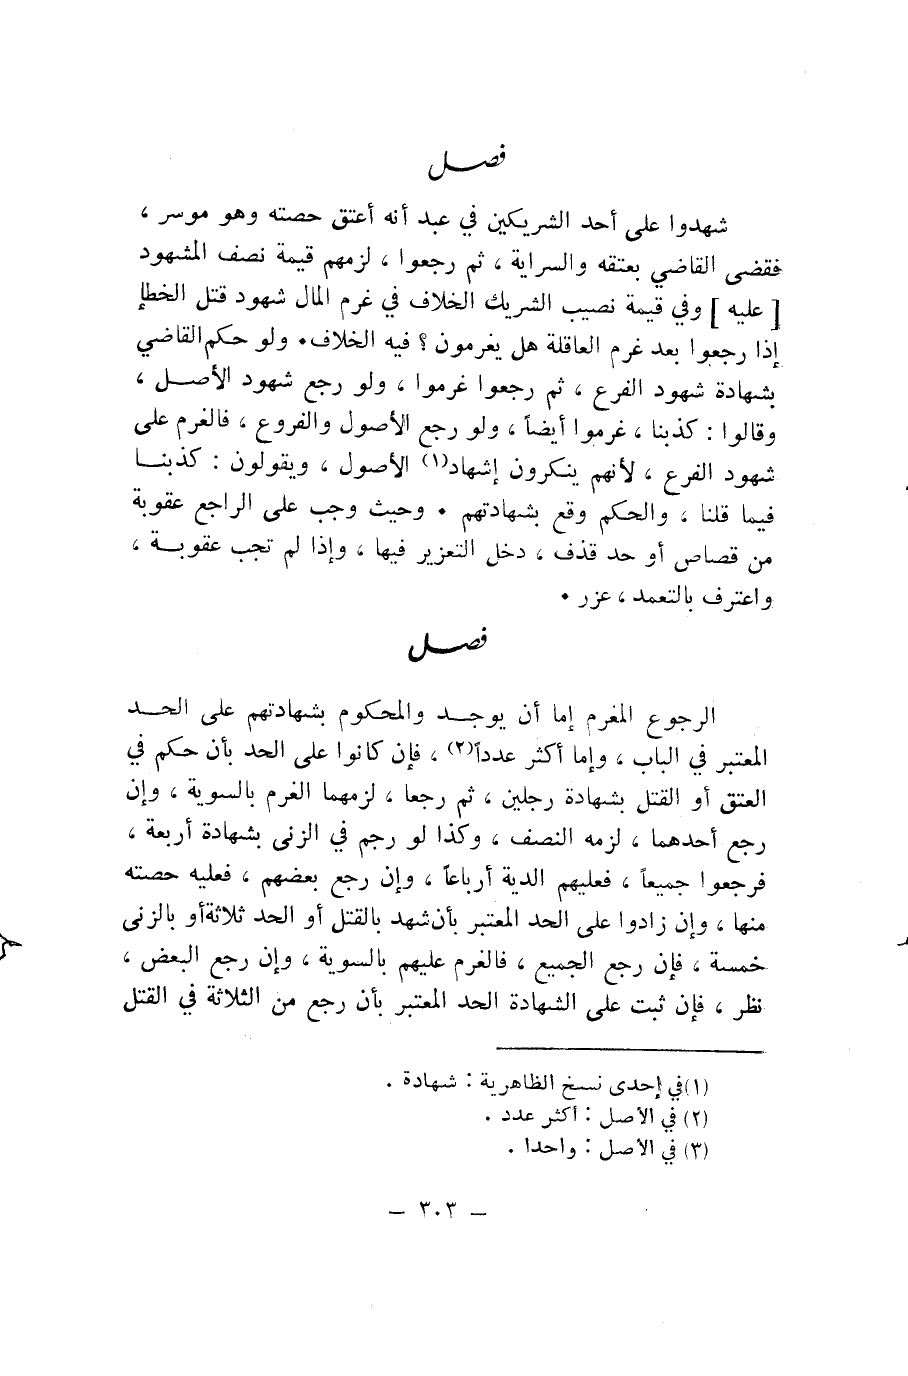 فصل
شهدوا على أحد الشريكين في عبد أنه أعتق حصته وهو موسر ،
فقضى القاضي بعتقه والسراية ، ثم رجعوا ، لزمهم قيمة نصف المشهود
[ عليه ] وفي قيمة نصيب الشريك الخلاف في غرم المال شهود قتل الخطإ
إذا رجعوا بعد غرم العاقلة هل يغرمون ؟ فيه الخلاف . ولو حكم القاضي
بشهادة شهود الفرع ، ثم رجعوا غرموا ، ولو رجع شهود الأصل ،
وقالوا : كذبنا ، غرموا أيضاً ، ولو رجع الأصول والفروع ، فالغرم على
شهود الفرع ، لأنهم ينكرون إشهاد(١) الأصول ، ويقولون : كذبنا
فيما قلنا ، والحكم وقع بشهادتهم . وحيث وجب على الراجع عقوبة
من قصاص أو حد قذف ، دخل التعزير فيها ، وإذا لم تجب عقوبة ،
واعترف بالتعمد ، عزر .
فصل
الرجوع المغرم إما أن يوجد والمحكوم بشهادتهم على الحد
المعتبر في الباب ، وإما أكثر عدداً(٢) ، فإن كانوا على الحد بأن حكم في
العتق أو القتل بشهادة رجلين ، ثم رجعا ، لزمهما الغرم بالسوية ، وإن
رجع أحدهما ، لزمه النصف ، وكذا لو رجم في الزنى بشهادة أربعة ،
فرجعوا جميعاً ، فعليهم الدية أرباعاً ، وإن رجع بعضهم ، فعليه حصته
منها ، وإن زادوا على الحد المعتبر بأن شهد بالقتل أو الحد ثلاثة أو بالزنى
خمسة ، فإن رجع الجميع ، فالغرم عليهم بالسوية ، وإن رجع البعض ،
نظر ، فإن ثبت على الشهادة الحد المعتبر بأن رجع من الثلاثة في القتل
(١) في إحدى نسخ الظاهرية : شهادة .
(٢) في الأصل : أكثر عدد .
(٣) في الأصل : واحدا .
– ٣٠٣ –